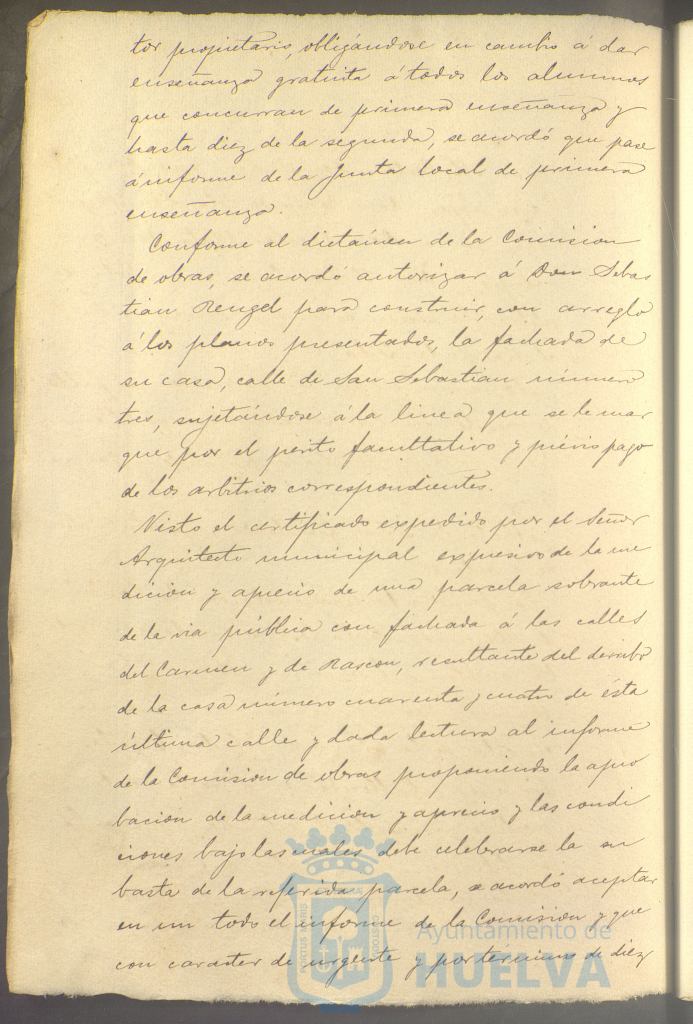 tor propietario, obligándose en cambio á dar
enseñanza gratuita á todos los alumnos
que concurran de primera enseñanza y
hasta diez de la segunda, se acordó que pase
á informe de la Junta local de primera
enseñanza.
Conforme al dictámen de la Comision
de obras, se acordó autorizar á Don Sebas
tian Rengel para construir, con arreglo
á los planos presentados, la fachada de
su casa, calle de San Sebastian número
tres, sujetándose á la linea que se le mar
que por el perito facultativo y prévio pago
de los arbitrios correspondientes.
Visto el certificado expedido por el Señor
Arquitecto municipal expresivo de la me
dicion y aprecio de una parcela sobrante
de la via pública con fachada á las calles
del Carmen y de Rascon, resultante del derribo
de la casa número cuarenta y cuatro de ésta
última calle y dada lectura al informe
de la Comision de obras proponiendo la apro
bacion de la medicion y aprecio y las condi
ciones bajo las cuales debe celebrarse la su
basta de la referida parcela, se acordó aceptar
en un todo el informe de la Comision y que
con caracter de urgente y por término de diez
Ayuntamiento de
HUELVA